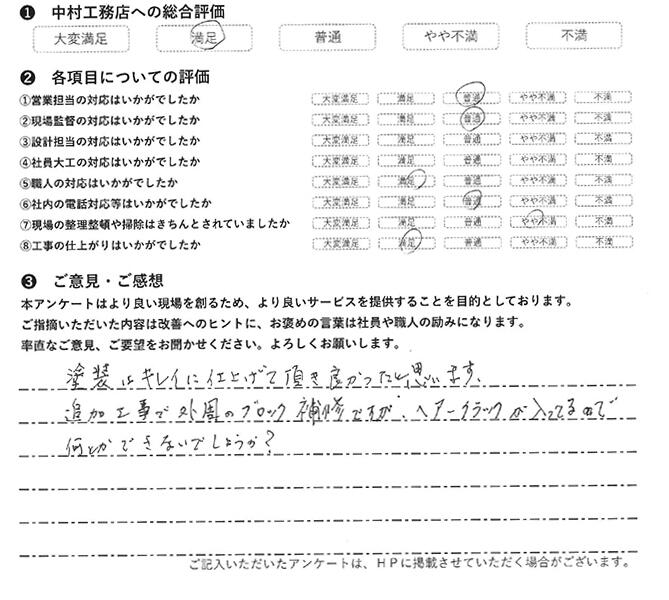 ❶ 中村工務店への総合評価
大変満足 満足 普通 やや不満 不満
❷ 各項目についての評価
①営業担当の対応はいかがでしたか 大変満足 満足 普通 やや不満 不満
②現場監督の対応はいかがでしたか 大変満足 満足 普通 やや不満 不満
③設計担当の対応はいかがでしたか 大変満足 満足 普通 やや不満 不満
④社員大工の対応はいかがでしたか 大変満足 満足 普通 やや不満 不満
⑤職人の対応はいかがでしたか 大変満足 満足 普通 やや不満 不満
⑥社内の電話対応等はいかがでしたか 大変満足 満足 普通 やや不満 不満
⑦現場の整理整頓や掃除はきちんとされていましたか 大変満足 満足 普通 やや不満 不満
⑧工事の仕上がりはいかがでしたか 大変満足 満足 普通 やや不満 不満
❸ ご意見・ご感想
本アンケートはより良い現場を創るため、より良いサービスを提供することを目的としております。
ご指摘いただいた内容は改善へのヒントに、お褒めの言葉は社員や職人の励みになります。
率直なご意見、ご要望をお聞かせください。よろしくお願いします。
塗装はキレイに仕上げて頂き良かったと思います。
追加工事で外周のブロック補修ですが、ヘアークラックが入ってるので
何とかできないでしょうか?
ご記入いただいたアンケートは、HPに掲載させていただく場合がございます。